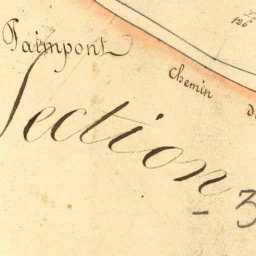 Paimpont
Chemin
Section